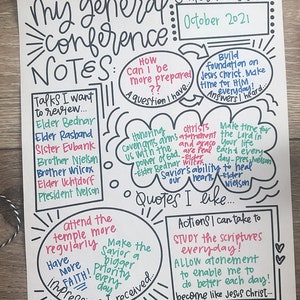 my general
conference
NOTES:
October 2021
HOW
can I be
more prepared
??
A question I have
Build
foundation on
Jesus Christ. Make
time for Him
everyday!
Answers I heard
Talks I want
to review...
Elder Bednar
Elder Rasband
Sister Eubank
Brother Nielson
Brother Wilcox
Elder Uchtdorf
President Nelson
Honoring
covenants arms
us with the
power of God
-Elder
Christ's
atonement
and grace
are real
-Elder
Wilcox
Make time for
the Lord in
your life
each and
every day.-Pres.
Savior's ability to heal
our heart
-Elder
Nielson
Quotes I like...
Attend the
temple more
regularly
Have
more
FAITH!
Make the
Savior a
bigger
priority
every
day
received
Actions I can take to
STUDY the scriptures
everyday!
ALLOW atonement
to enable me to
do better each day!
become like Jesus Christ